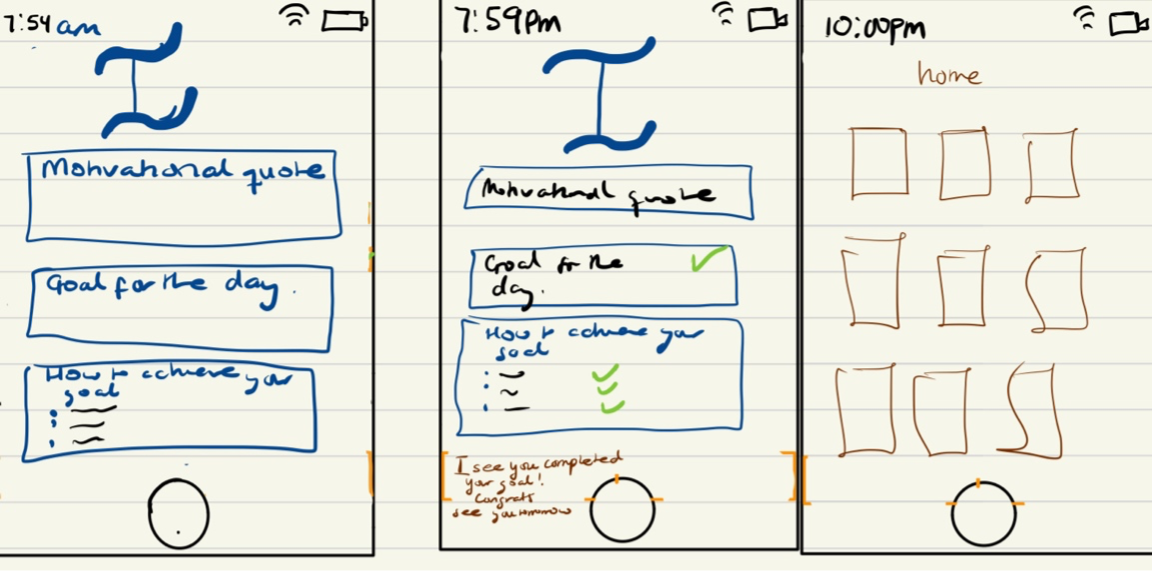 7:54 am
I
Motivational quote
Goal for the day.
How to achieve your
goal
7:59pm
I
Motivational quote
Goal for the
day.
How to achieve your
goal
I see you completed
your goal!
Congrats
see you tomorrow
10:00pm
home